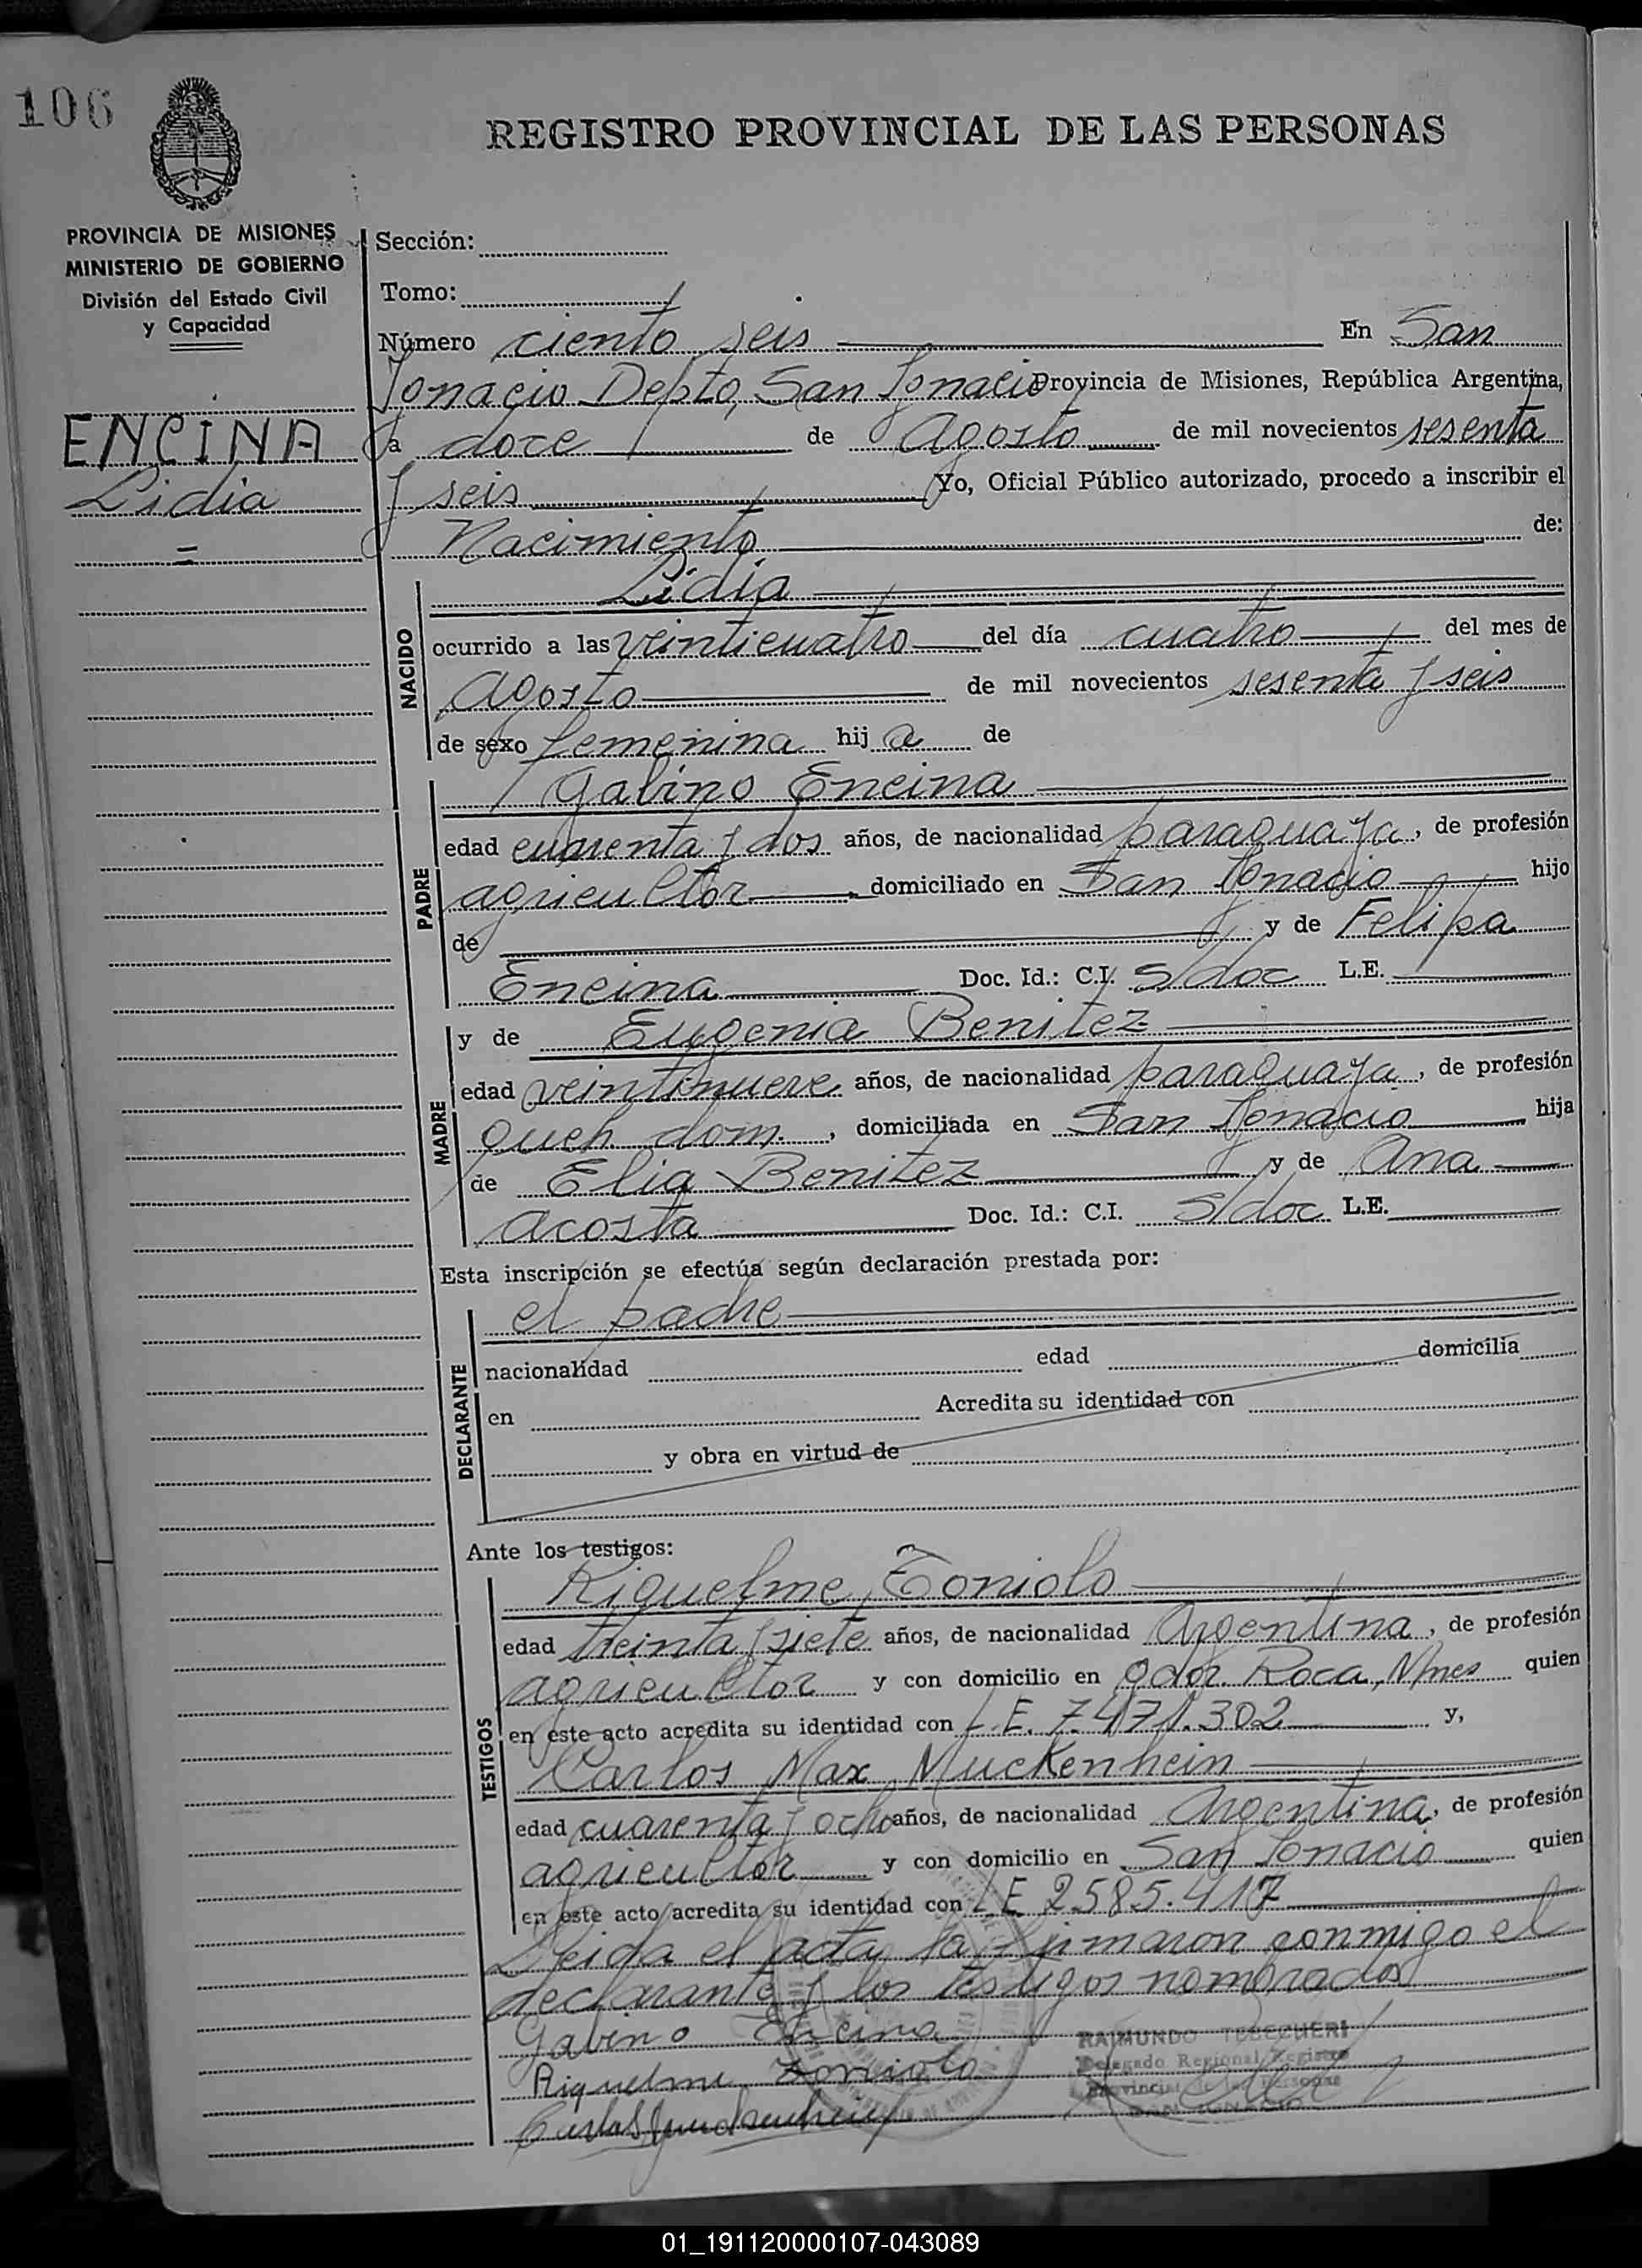 106
REGISTRO PROVINCIAL DE LAS PERSONAS
PROVINCIA DE MISIONES
MINISTERIO DE GOBIERNO
División del Estado Civil
y Capacidad
ENCINA
Lidia
Sección:
Tomo:
Número ciento seis En San
Ignacio Depto, San Ignacio Provincia de Misiones, República Argentina,
a doce de Agosto de mil novecientos sesenta
y seis Yo, Oficial Público autorizado, procedo a inscribir el
Nacimiento de:
NACIDO
Lidia
ocurrido a las veinticuatro del día cuatro del mes de
Agosto de mil novecientos sesenta y seis
de sexo femenina hij a de
PADRE
Gabino Encina
edad cuarenta y dos años, de nacionalidad paraguaya, de profesión
agricultor domiciliado en San Ignacio hijo
de y de Felipa
Encina Doc. Id.: C.I. S/doc L.E.
MADRE
y de Eugenia Benitez
edad veintinueve años, de nacionalidad paraguaya, de profesión
queh dom., domiciliada en San Ignacio hija
de Elia Benitez y de Ana
Acosta Doc. Id.: C.I. S/doc L.E.
Esta inscripción se efectúa según declaración prestada por:
DECLARANTE
el padre
nacionalidad edad domicilia
en Acredita su identidad con
y obra en virtud de
Ante los testigos:
TESTIGOS
Riquelme, Zoniolo
edad treinta y siete años, de nacionalidad Argentina, de profesión
agricultor y con domicilio en Gdor. Roca, Mnes quien
en este acto acredita su identidad con L.E. 7.471.302 y,
Carlos Max Muckenhein
edad cuarenta y ocho años, de nacionalidad Argentina, de profesión
agricultor y con domicilio en San Ignacio quien
en este acto acredita su identidad con L E 2585.417
Leida el acta la firmaron conmigo el
declarante y los testigos nombrados
Gabino Encina
Riquelme Zoniolo
RAIMUNDO
Delegado Regional Registro
Provincial de las Personas
SAN IGNACIO
01_191120000107-043089